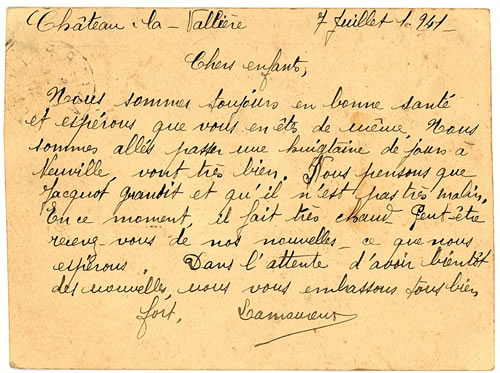 Château-la-Vallière 7 Juillet 1.941-
Chers enfants,
Nous sommes toujours en bonne santé
et espérons que vous en êtes de même. Nous
sommes allés passer une huigtaine de jours à
Neuville, vont très bien. Nous pensons que
Jacquot grandit et qu'il n'est pas très malin.
En ce moment, il fait très chaud Peut-être
recevez-vous de nos nouvelles - ce que nous
espérons. Dans l'attente d'avoir bientôt
des nouvelles, nous vous embrassons tous bien
fort.